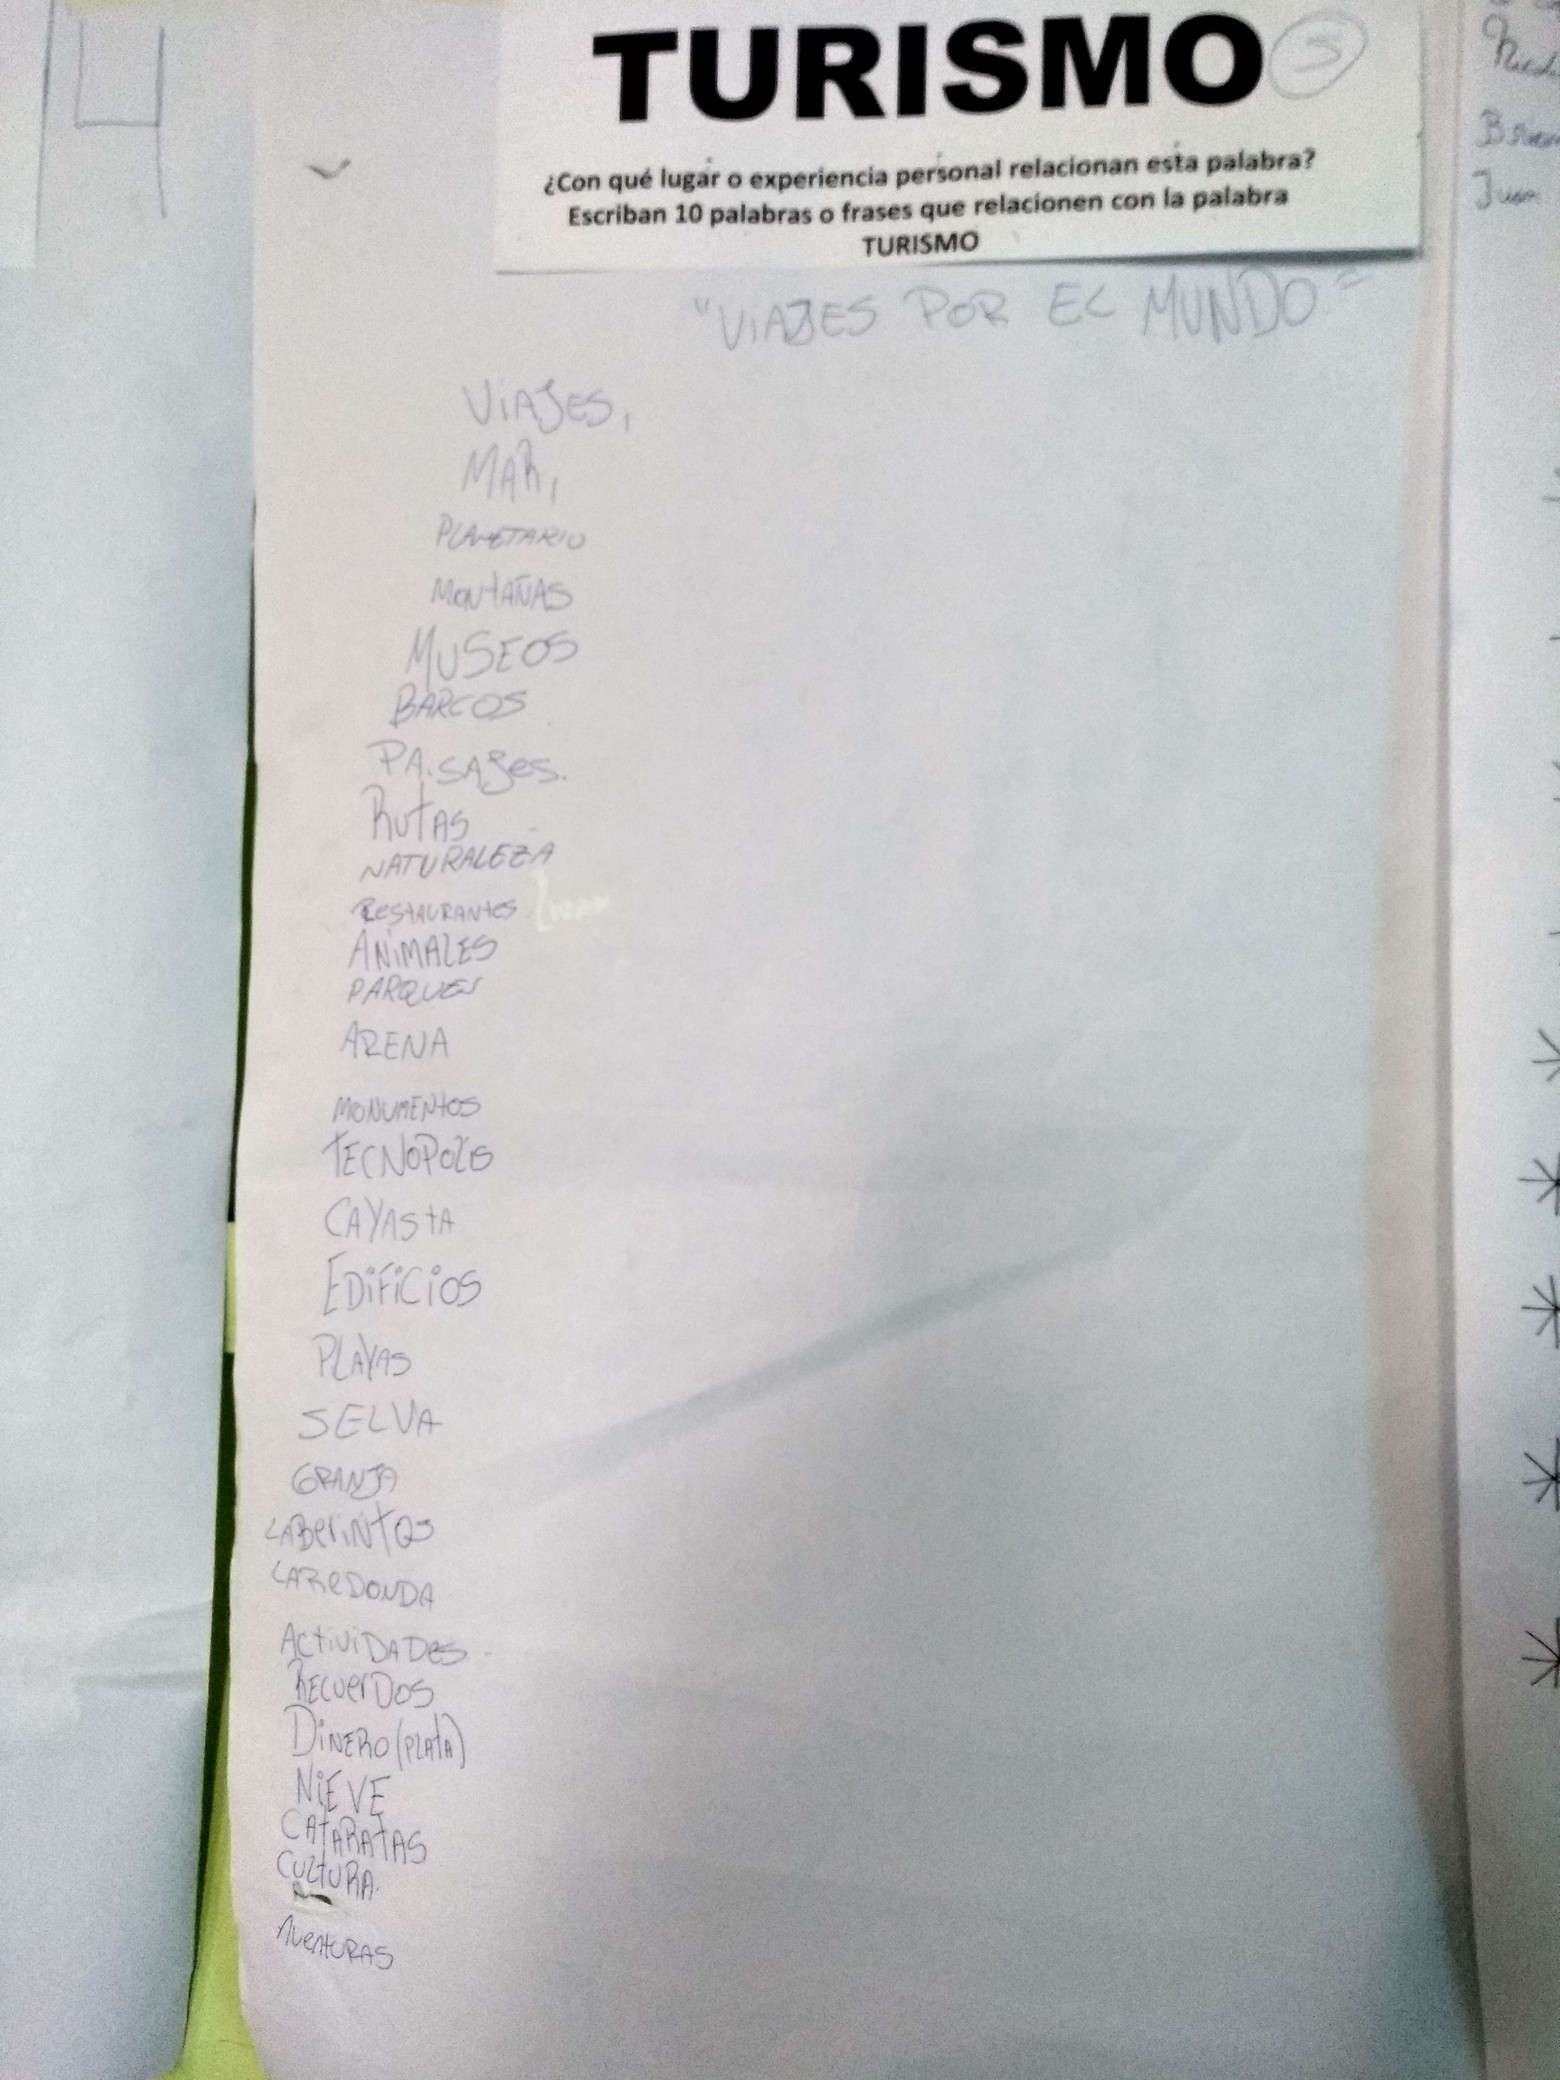 TURISMO 5
¿Con qué lugar o experiencia personal relacionan esta palabra?
Escriban 10 palabras o frases que relacionen con la palabra
TURISMO
"VIAJES POR EL MUNDO"
VIAJES,
MAR,
PLANETARIO
MONTAÑAS
MUSEOS
BARCOS
PAISAJES.
RUTAS
NATURALEZA
RESTAURANTES
ANIMALES
PARQUES
ARENA
MONUMENTOS
TECNOPOLIS
CAYASTA
EDIFICIOS
PLAYAS
SELVA
GRANJA
LABERINTOS
LA REDONDA
ACTIVIDADES
RECUERDOS
DINERO (PLATA)
NIEVE
CATARATAS
CULTURA.
AVENTURAS